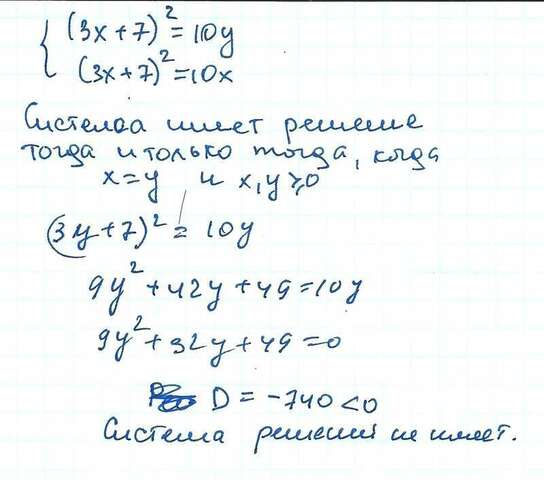 (3x+7)²=10y
(3x+7)²=10x
Система имеет решение
тогда и только тогда, когда
x=y и x,y≥0
(3y+7)²=10y
9y²+42y+49=10y
9y²+32y+49=0
D=-740<0
Система решений не имеет.